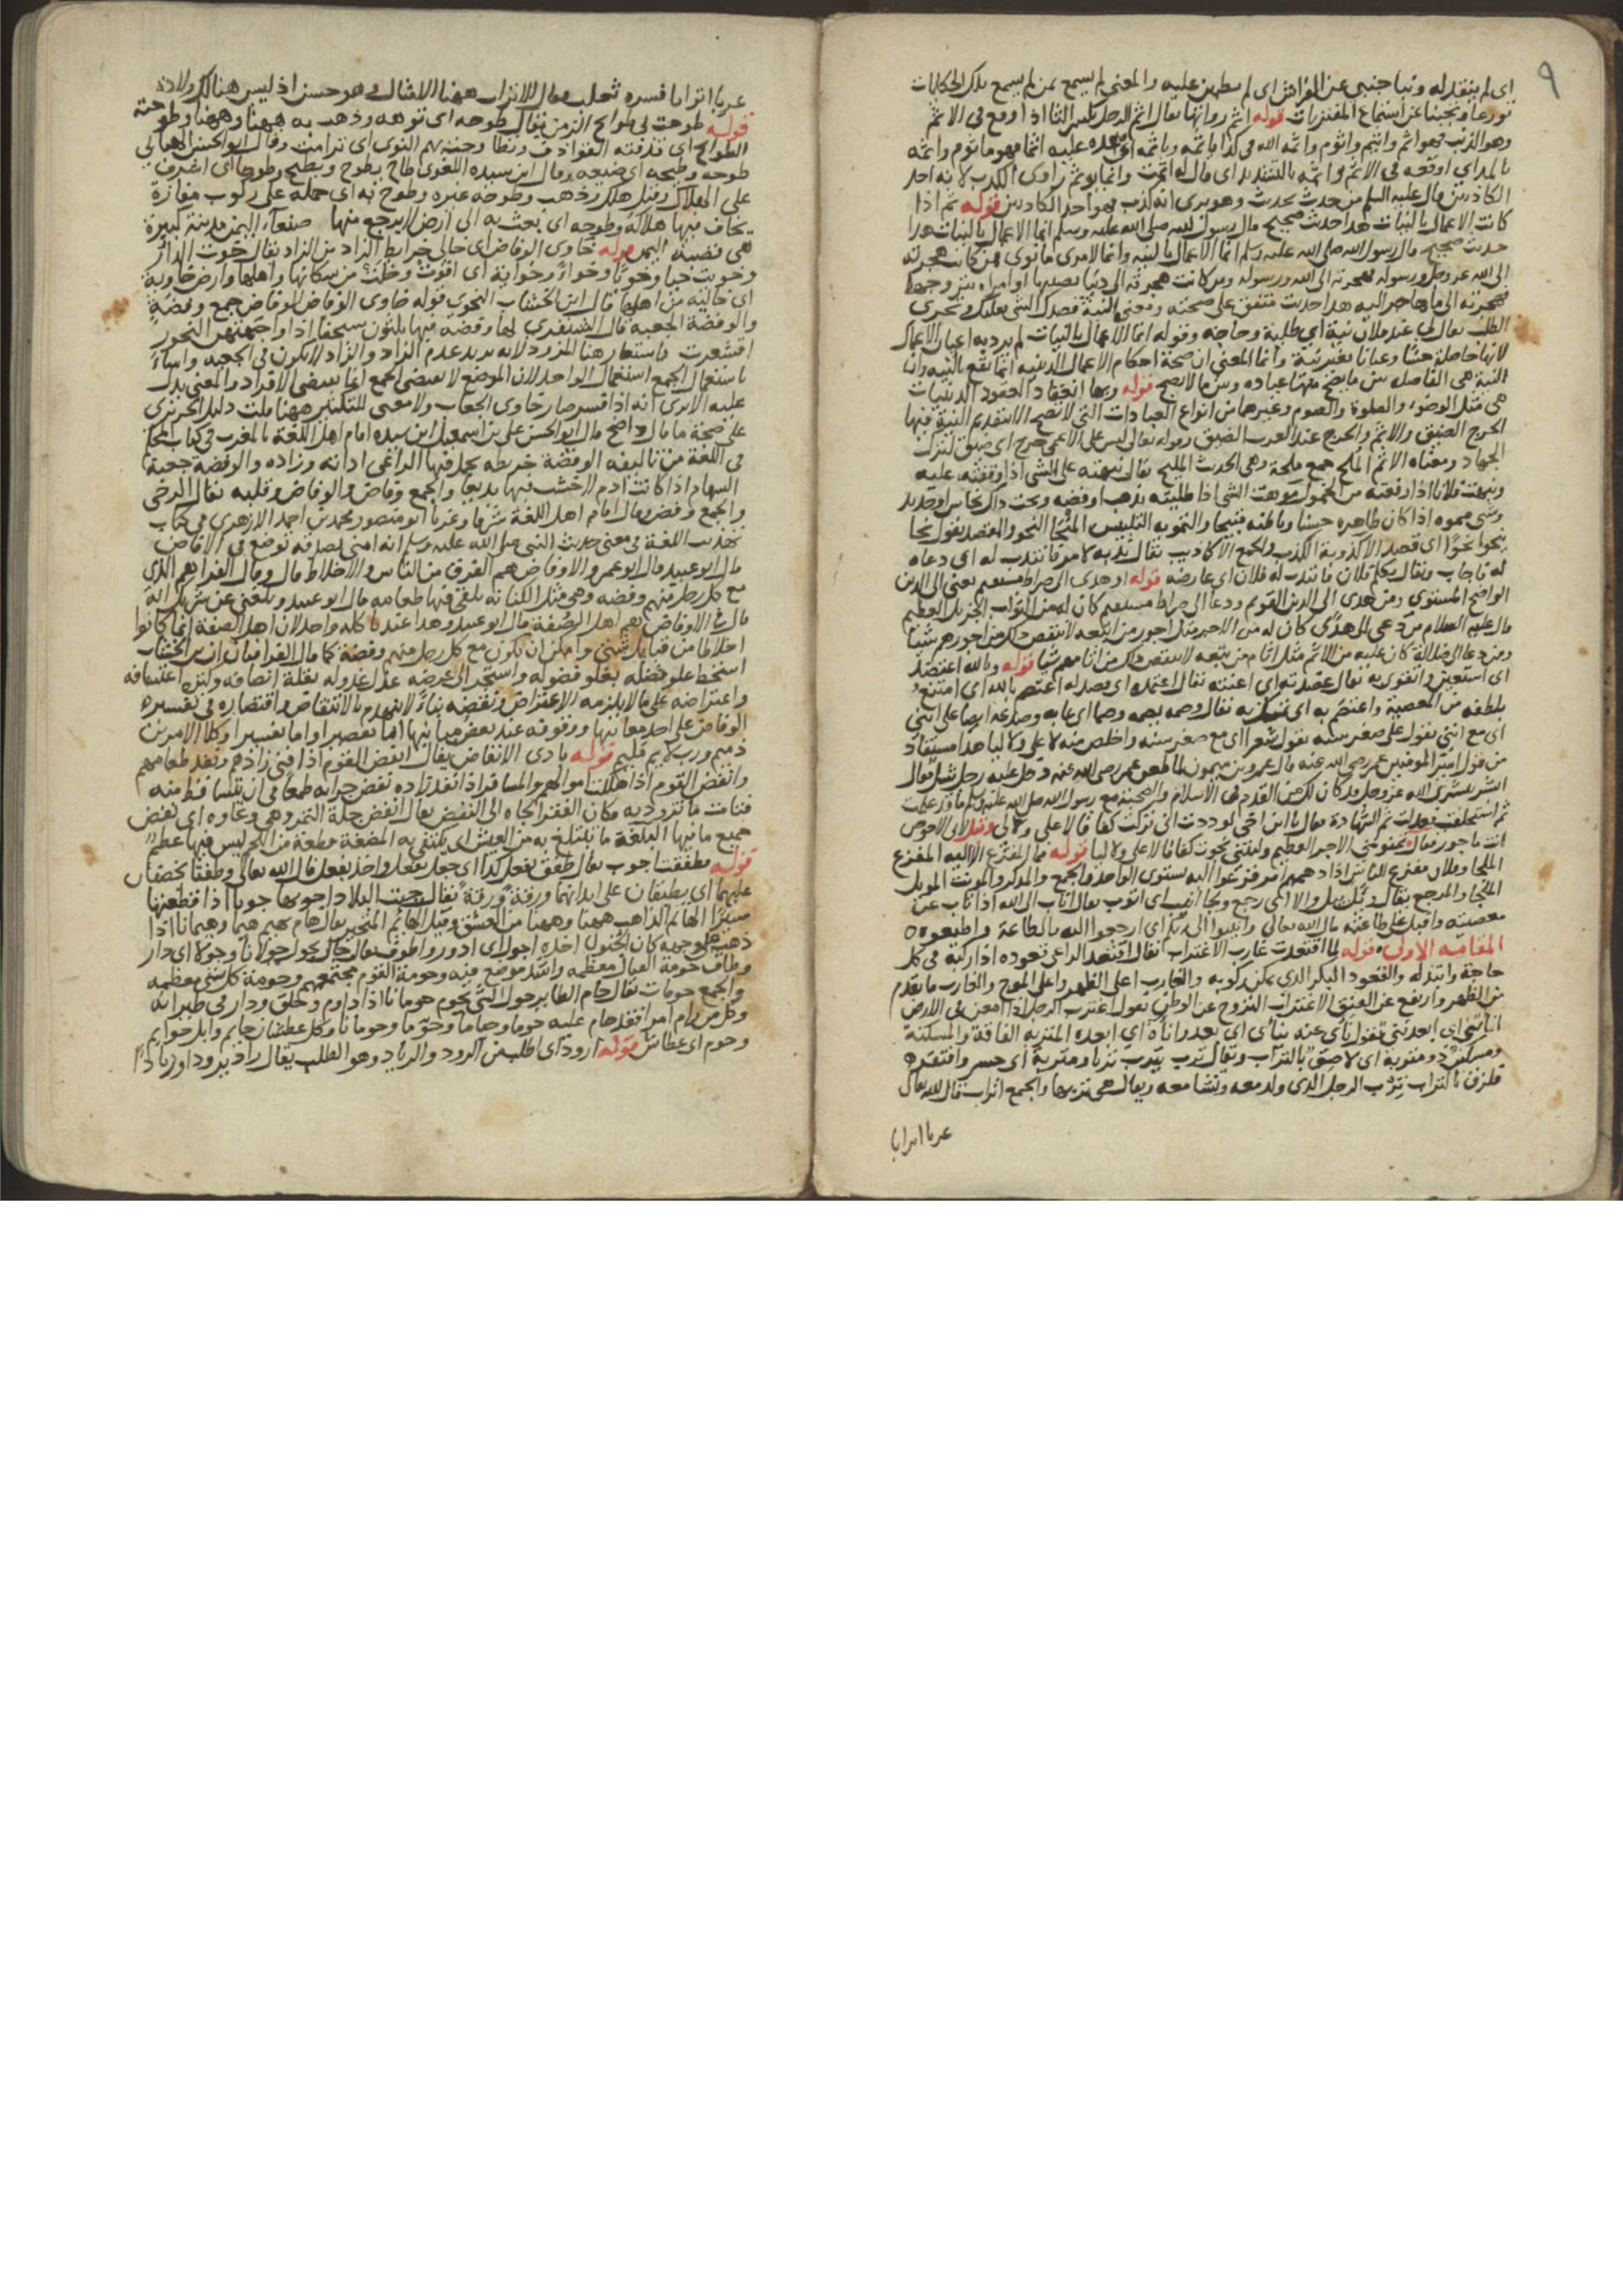 ٩
اي لم ينقد له ونبا جنبي عن الفراش اي لم يطمئن عليه والمعنى لم يسمع بمن لم يسمع تلك الحكايات
تورعا وتجنبا عن استماع المفتريات قوله اثم رواتها يقال اثم الرجل بكسر الثا اذا وقع في الاثم
وهو الذنب فهو اثم واثيم واثوم واثمه الله في كذا ياثمه وياثمه اي عده عليه اثما فهو ماثوم واثمه
بالمد اي اوقعه في الاثم واثمه بالتشديد اي قال له اثمت وانما يوثم راوي الكذب لانه احد
الكاذبين قال عليه السلم من حدث بحديث وهو يرى انه كذب فهو احد الكاذبين قوله ثم اذا
كانت الاعمال بالنيات هذا حديث صحيح قال رسول الله صلى الله عليه وسلم انما الاعمال بالنيات هذا
حديث صحيح قال رسول الله صلى الله عليه وسلم انما الاعمال بالنية وانما لامرئ ما نوى فمن كانت هجرته
الى الله عز وجل ورسوله فهجرته الى الله ورسوله ومن كانت هجرته الى دنيا يصيبها او امراة يتزوجها
فهجرته الى ما هاجر اليه هذا حديث متفق على صحته ومعنى النية قصدك الشي بقلبك وتحري
الطلب يقال لي عند فلان نية اي طلبة وحاجة وقوله انما الاعمال بالنيات لم يرد به اعيان الاعمال
لانها حاصلة حسا وعيانا بغير نية وانما المعنى ان صحة احكام الاعمال الدينية انما تقع بالنية وان
النية هي الفاصلة بين ما يصح منها عبادة وبين ما لا يصح قوله وبها انعقاد العقود الدينيات
هي مثل الوضوء والصلوة والصوم وغيرها من انواع العبادات التي لا تصح الا بتقديم النية فيها
الحرج الضيق والاثم والحرج عند العرب الضيق وقوله تعالى ليس على الاعمى حرج اي ضيق لترك
الجهاد ومعناه الاثم الملح جمع ملحة وهي الحديث المليح يقال نبهته على الشي اذا وقفته عليه
ونبهت فلانا اذا رفعته من الخمول موهت الشي اذا طليته بذهب او فضة وتحت ذلك نحاس او حديد
وشي مموه اذا كان ظاهره حسنا وباطنه قبيحا والتمويه التلبيس المنحا النحو والقصد يقول نحا
ينحو نحوا اي قصد الاكذوبة الكذب والجمع الاكاذيب يقال ندبه لامر فانتدب له اي دعاه
له فاجاب ويقال تكلم فلان فانتدب له فلان اي عارضه قوله او هدى الى صراط مستقيم يعني الى الدين
الواضح المستوي ومن هدى الى الدين القويم ودعا الى صراط مستقيم كان له من الثواب الجزيل العظيم
قال عليه السلام من دعى الى هدى كان له من الاجر مثل اجور من اتبعه لا ينقص ذلك من اجورهم شيئا
ومن دعا الى ضلالة كان عليه من الاثم مثل اثام من يتبعه لا ينقص ذلك من اثامهم شيا قوله وبالله اعتضد
اي استعين واتقوى به يقال عضدته اي اعنته يقال اعتمده اي قصد له اعتصم بالله اي امتنع
بلطفه من المعصية واعتصم به اي تمسك به يقال وصمه يصمه وصما اي عابه وصدعه ايضا على انني
اي مع انني تقول على صغر سنه يقول شعرا اي مع صغر سنه واخلص منه لا علي ولا ليا هذا مستفاد
من قول امير المومنين عمر رضي الله عنه قال عمرو بن ميمون لما طعن عمر رضي الله عنه دخل عليه رجل شاب فقال
ابشر ببشرى الله عز وجل قد كان لك من القدم في الاسلام والصحبة مع رسول الله صلى الله عليه وسلم ما قد علمت
ثم استخلفت فعدلت ثم الشهادة فقال يا ابن اخي لوددت اني تركت كفافا لا علي ولا لي وقيل لابي الاحوص
انت ماجور فقال تمنوني الاجر العظيم وليتني نجوت كفافا لا علي ولا ليا قوله فما المفزع الا اليه المفزع
الملجا وفلان مفزع للناس اذا دهمهم امر فزعوا اليه يستوي الواحد والجمع والمذكر والمونث الموئل
الملجا والمرجع يقال وئل يئل والا اي رجع ونجا انيب اي اتوب يقال اناب الى الله اذا تاب عن
معصيته واقبل على طاعته قال الله تعالى وانيبوا الى ربكم اي ارجعوا اليه بالطاعة واطيعوه
المقامة الاولى قوله لما اقتعدت غارب الاغتراب يقال اقتعد الراعي قعوده اذا ركبه في كل
حاجة وابتذله والقعود البكر الذي يمكن ركوبه والغارب اعلى الظهر واعلى الموج والغارب ما تقدم
من الظهر وارتفع عن العنق الاغتراب النزوح عن الوطن يقول اغترب الرجل اذا امعن في الارض
اناتني اي ابعدتني تقول ناى عنه يناى اي بعد واناه اي ابعده المتربة الفاقة والمسكنة
ومسكين ذو متربة اي لاصق بالتراب ويقال ترب يترب تربا ومتربة اي خسر وافتقر
فلزق بالتراب ترب الرجل الذي ولد معه ونشا معه ويقال هي تربها والجمع اتراب قال الله تعالى
عربا اترابا
عربا اترابا فسره ثعلب فقال الاتراب ههنا الامثال وهو حسن اذ ليس هناك ولادة
قوله طوحت بي طوائح الزمن يقال طوحه اي توهه وذهب به ههنا وههنا وطوحته
الطوائح اي قذفته القواذف وتطاوحت بهم النوى اي ترامت وقال ابو الحسن الهنائي
طوحه وطيحه اي ضيعه وقال ابن سيده اللغوي طاح يطوح ويطيح وطوحا اي اشرف
على الهلاك وقيل هلك وذهب وطوحه غيره وطوح به اي حمله على ركوب مفازة
يخاف فيها هلاكه وطوحه اي بعث به الى ارض لا يرجع منها صنعاء اليمن مدينة كبيرة
هي قصبة اليمن قوله خاوي الوفاض اي خالي خرايط الزاد من الزاد يقال خوت الدار
وخويت خيا وخويا وخواء وخواية اي اقوت وخلت من سكانها واهلها وارض خاوية
اي خالية من اهلها قال ابن الخشاب النحوي قوله خاوي الوفاض الوفاض جمع وفضة
والوفضة الجعبة قال الشنفرى لها وفضة فيها ثلثون سيحفا اذا واجهتهن النحور
اقشعرت فاستعار هنا المزود لانه يريد عدم الزاد والزاد لا يكون في الجعبة واساء
باستعمال الجمع استعمال الواحد لان الموضع لا يقتضي الجمع انما يقتضي الافراد والمعنى يدل
عليه الا ترى انه اذا فسر صار خاوي الجعاب ولا معنى للتكثير ههنا قلت دليل الحريري
على صحة ما قال واضح قال ابو الحسن علي بن اسمعيل ابن سيده امام اهل اللغة بالمغرب في كتاب المحكم
في اللغة من تاليفه الوفضة خريطة يحمل فيها الراعي اداته وزاده والوفضة جعبة
السهام اذا كانت ادم لا خشب فيها بديعا والجمع وفاض والوفاض وقلبه يقال الرخى
والجمع وفض وقال امام اهل اللغة شرقا وغربا ابو منصور محمد بن احمد الازهري في كتاب
تهذيب اللغة في معنى حديث النبي صلى الله عليه وسلم انه امر بصدقة توضع في الاوفاض
قال ابو عبيد قال ابو عمرو الاوفاض هم الفرق من الناس والاخلاط قال وقال الفرا هم الذي
مع كل رجل منهم وفضة وهي مثل الكنانة يلقي فيها طعامه قال ابو عبيد وبلغني عن شريك انه
قال في الاوفاض هم اهل الصفة قال ابو عبيد وهذا عندنا كله واحد لان اهل الصفة انما كانوا
اخلاطا من قبايل شتى وامكن ان يكون مع كل رجل منهم وفضة كما قال الفرا فبان ان ابن الخشاب
استحط علو فضله بغلو فضوله واستجر الى عرضه عذل عذوله بقلة انصافه وكثرة اعتسافه
واعتراضه على ما لا يلزمه الاعتراض ونقضه بناء لا ينهدم بالانتقاض واقتصاره في تفسيره
الوفاض على احد معانيها ووقوفه عند بعض مبانيها اما تقصيرا واما تفسيرا وكلا الامرين
ذميم ورب لايم مليم قوله بادي الانفاض يقال انفض القوم اذا فني زادهم ونفد طعامهم
وانفض القوم اذا هلكت اموالهم والمسافر اذا نفد زاده نفض جرابه طمعا في ان يتساقط منه
فتات ما تزود به فكان الفقر الجاه الى النفض يقال انفض جلة التمر وهي وعاوه اي نفض
جميع ما فيها البلغة ما يتبلغ به من العيش اي يكتفى به المضغة قطعة من اللحم ليس فيها عظم
قوله فطفقت اجوب يقال طفق يفعل كذا اي جعل يفعل واخذ يفعل قال الله تعالى وطفقا يخصفان
عليهما اي يطبقان على ابدانهما ورقة ورقة يقال جبت البلاد اجوبها جوبا اذا قطعتها
سيرا الهائم الذاهب ههنا وههنا من العشق وقيل الهائم المتحير يقال هام يهيم هيما وهيمانا اذا
ذهب على وجهه كان الجنون اخذه اجول اي ادور واطوف يقال جال يجول جولانا وجولا اي دار
وطاف حومة القتال معظمه واشد موضع فيه وحومة القوم مجتمعهم وحومة كل شي معظمه
والجمع حومات يقال حام الطاير حول الشي يحوم حومانا اذا داوم وحلق ودار في طيرانه
وكل من رام امرا فقد حام عليه حوما وحياما وحؤوما وحومانا وكل عطشان حايم وابل حوايم
وحوم اي عطاش قوله ارود اي اطلب من الرود والرياد وهو الطلب يقال راد يرود رودا وريادا